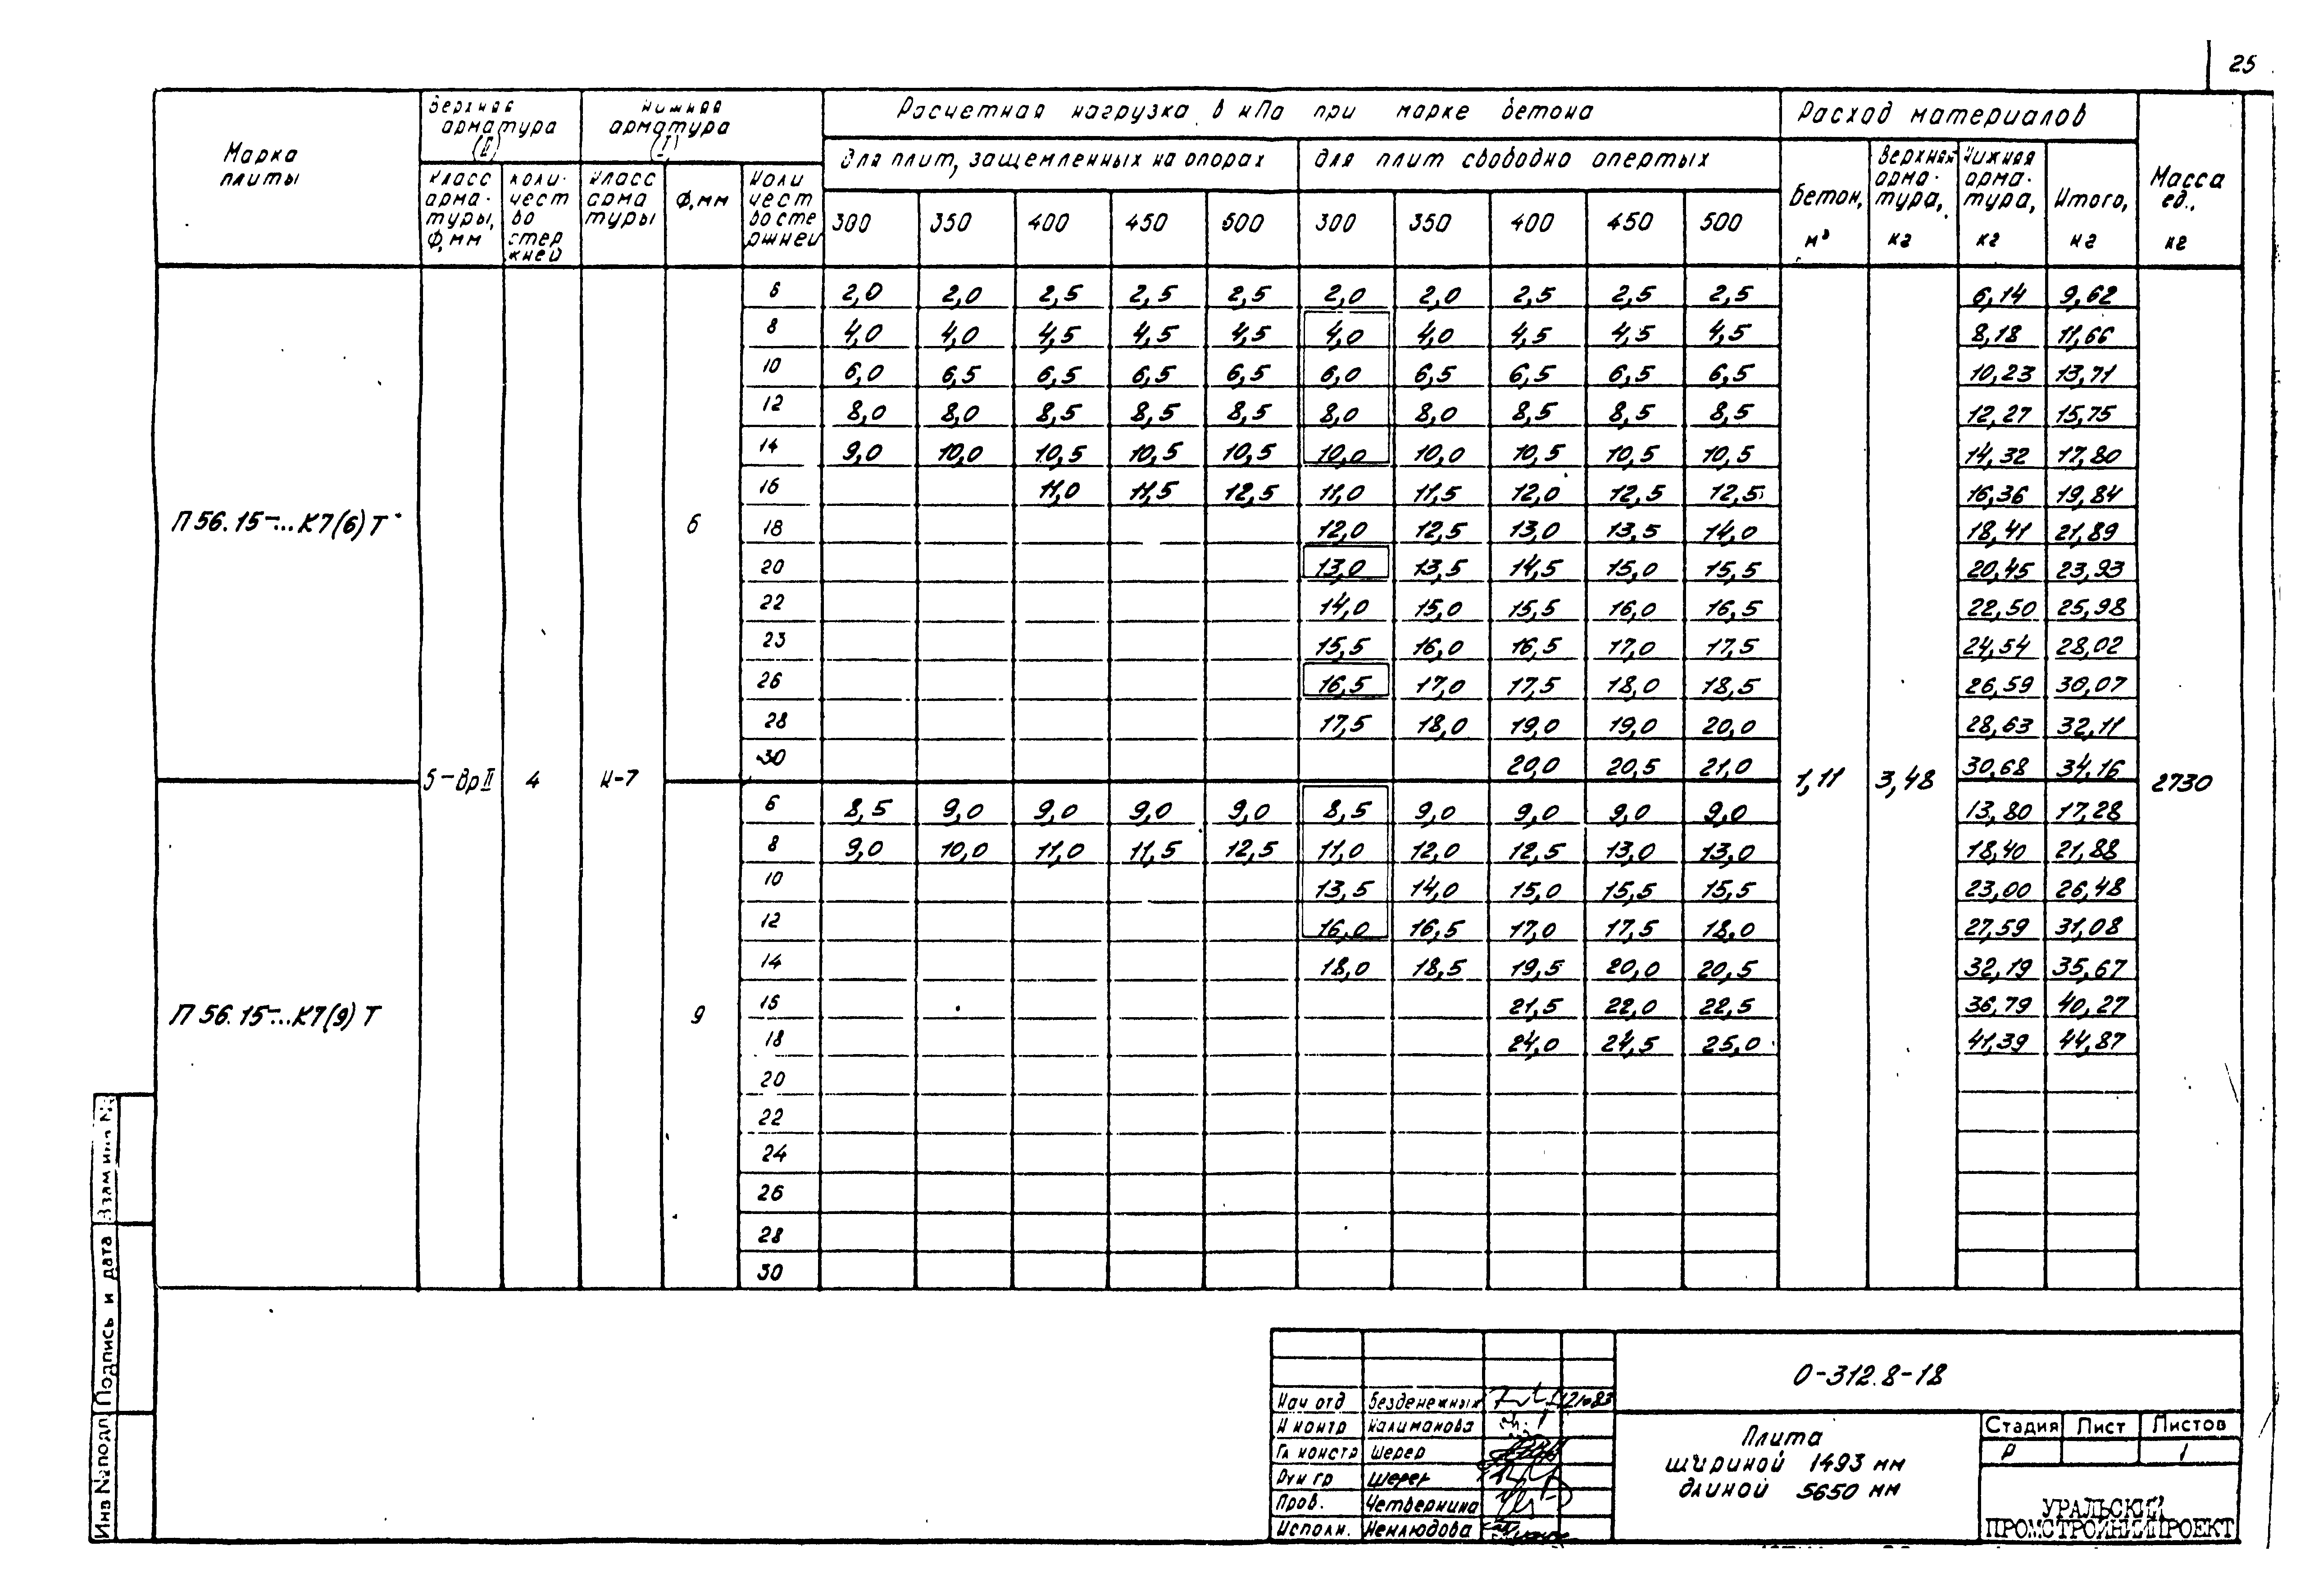 25
Марка плиты
Верхняя арматура (II)
Нижняя арматура (I)
Расчетная нагрузка в кПа при марке бетона
Расход материалов
Масса ед., кг
для плит, защемленных на опорах
для плит свободно опертых
Класс арма-туры, Ф, мм
Коли-чест во стер жней
Класс арма туры
Ф, мм
Коли чест во сте ржней
300 350 400 450 500 300 350 400 450 500
Бетон, м³
Верхняя арма-тура, кг
Нижняя арма-тура, кг
Итого, кг
6 2,0 2,0 2,5 2,5 2,5 2,0 2,0 2,5 2,5 2,5 6,14 9,62
8 4,0 4,0 4,5 4,5 4,5 4,0 4,0 4,5 4,5 4,5 8,18 11,66
10 6,0 6,5 6,5 6,5 6,5 6,0 6,5 6,5 6,5 6,5 10,23 13,71
12 8,0 8,0 8,5 8,5 8,5 8,0 8,0 8,5 8,5 8,5 12,27 15,75
14 9,0 10,0 10,5 10,5 10,5 10,0 10,0 10,5 10,5 10,5 14,32 17,80
16 11,0 11,5 12,5 11,0 11,5 12,0 12,5 12,5 16,36 19,84
П 56.15-...К7(6)Т 6 18 12,0 12,5 13,0 13,5 14,0 18,41 21,89
20 13,0 13,5 14,5 15,0 15,5 20,45 23,93
22 14,0 15,0 15,5 16,0 16,5 22,50 25,98
23 15,5 16,0 16,5 17,0 17,5 24,54 28,02
26 16,5 17,0 17,5 18,0 18,5 26,59 30,07
28 17,5 18,0 19,0 19,0 20,0 28,63 32,11
30 20,0 20,5 21,0 30,68 34,16
5-Вр II 4 К-7 1,11 3,48 2730
6 8,5 9,0 9,0 9,0 9,0 8,5 9,0 9,0 9,0 9,0 13,80 17,28
8 9,0 10,0 11,0 11,5 12,5 11,0 12,0 12,5 13,0 13,0 18,40 21,88
10 13,5 14,0 15,0 15,5 15,5 23,00 26,48
12 16,0 16,5 17,0 17,5 18,0 27,59 31,08
14 18,0 18,5 19,5 20,0 20,5 32,19 35,67
П 56.15-...К7(9)Т 9 16 21,5 22,0 22,5 36,79 40,27
18 24,0 24,5 25,0 41,39 44,87
20
22
24
26
28
30
Взам инв №
Подпись и дата
Инв № подл
0-312.8-18
Нач отд Безденежных
Н контр Калиманова
Гл констр Шерер
Рук гр Шерер
Пров. Четвернина
Исполн. Неклюдова
Плита
шириной 1493 мм
длиной 5650 мм
Стадия Лист Листов
Р 1
УРАЛЬСКИЙ
ПРОМСТРОЙНИИПРОЕКТ